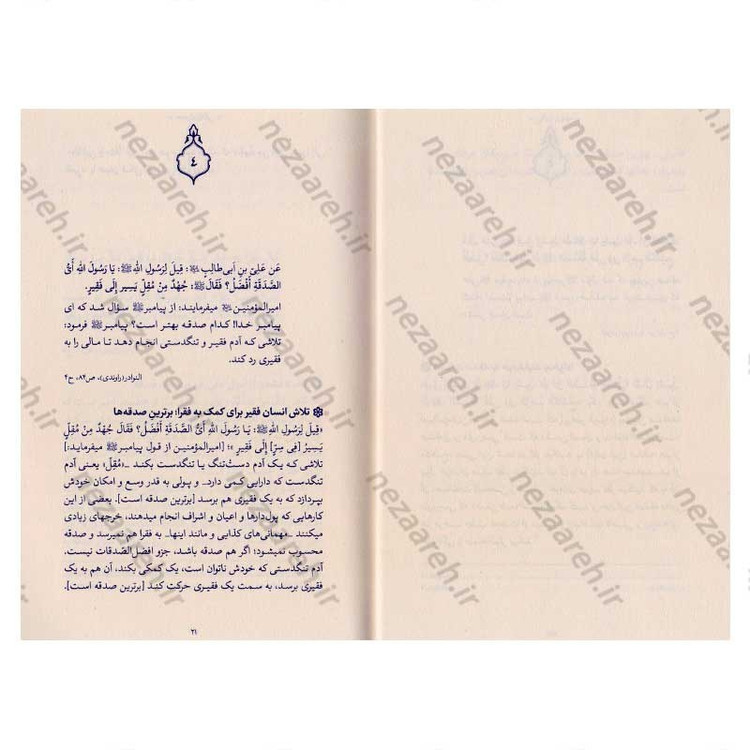 ٤
عَن عَلِیِّ بنِ اَبی‌طالِبٍ ﵇: قیلَ لِرَسولِ اللهِ ﷺ: یا رَسولَ اللهِ أَیُّ
الصَّدَقَةِ أَفضَلُ؟ فَقالَ ﷺ: جُهدٌ مِن مُقِلٍّ یَسیر إلَی فَقیرٍ.
امیرالمؤمنین ﵇ میفرمایند: از پیامبر ﷺ سؤال شد که ای
پیامبر خدا! کدام صدقه بهتر است؟ پیامبر ﷺ فرمود:
تلاشی که آدم فقیر و تنگدستی انجام دهد تا مالی را به
فقیری رد کند.
النوادر(راوندی)، ص۸۴، ح۴
تلاش انسان فقیر برای کمک به فقرا؛ برترین صدقه‌ها
«قیلَ لِرَسولِ اللهِ ﷺ: یا رَسولَ اللهِ أَیُّ الصَّدَقَةِ أَفضَلُ؟ فَقالَ جُهدٌ مِن مُقِلٍّ
یَسیرُ [فی سِرٍّ] إلَی فَقیرٍ»؛ [امیرالمؤمنین از قول پیامبر ﷺ میفرماید:]
تلاشی که یک آدم دست‌تنگ یا تنگدست بکند ــ«مُقِل» یعنی آدم
تنگدست که دارایی کمی دارد ــ و پولی به قدر وسع و امکان خودش
بپردازد که به یک فقیری هم برسد [برترین صدقه است]. بعضی از این
کارهایی که پول‌دارها و اعیان و اشراف انجام میدهند، خرجهای زیادی
میکنند ــ مهمانی‌های کذایی و مانند اینها ــ به فقرا هم نمیرسد و صدقه
محسوب نمیشود؛ اگر هم صدقه باشد، جزو افضل‌الصّدقات نیست.
آدم تنگدستی که خودش ناتوان است، یک کمکی بکند، آن هم به یک
فقیری برسد، به سمت یک فقیری حرکت کند [برترین صدقه است].
۲۱
nezaareh.ir